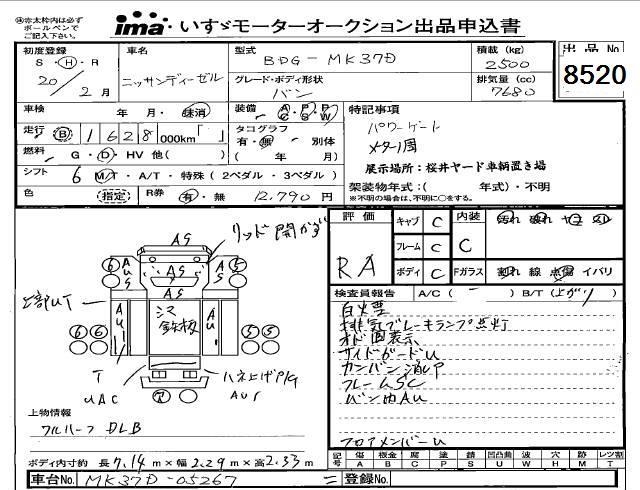 ㊟赤太枠内は必ず
ボールペンで
ご記入下さい。
ima いすゞモーターオークション出品申込書
初度登録
S・H・R
20年 2月
車名
ニッサンディーゼル
型式
BDG-MK37D
グレード・ボディ形状
バン
積載(kg)
2500
排気量(cc)
7680
出品No
8520
車検 年 月・抹消
走行 B 1628,000km「 」
燃料 G・D・HV 他( )
シフト 6 M/T・A/T・特殊(2ペダル・3ペダル)
色 (指定) R券 有・無 12,790円
装備 A/C・P/S・P/W
タコグラフ
有・無 別体
( 年 月)
特記事項
パワーゲート
メーター1周
展示場所:桜井ヤード車輌置き場
架装物年式:( 年式)・不明
※不明の場合は、不明に○をする。
評価 RA
キャブ C
フレーム C
ボディ C
内装 C
Fガラス
汚れ 破れ ヤニ スレ
割れ 線 点傷 イバリ
検査員報告 A/C(ー) B/T(上がり)
白火煙
排気ブレーキランプ点灯
オド固表示
サイドガードU
カンバン消しP
フレームSC
バン内AU
フロアメンバーU
リッド開かず
AS
AUS
AS
AS
AS
6
5
上部UT
AU1
シマ鉄板
AU1
6 6
5 5
T
UAC
ハネ上げP/G
AU1
上物情報
フルハーフ DLB
ボディ内寸約 長7.14m×幅2.29m×高2.33m
記号 傷 A 板金 B 腐 C 塗 P 錆 S 凹凸曲 U 波 W 穴 H 跡 M レツ割 T
車台No. MK37D-05267
登録No.